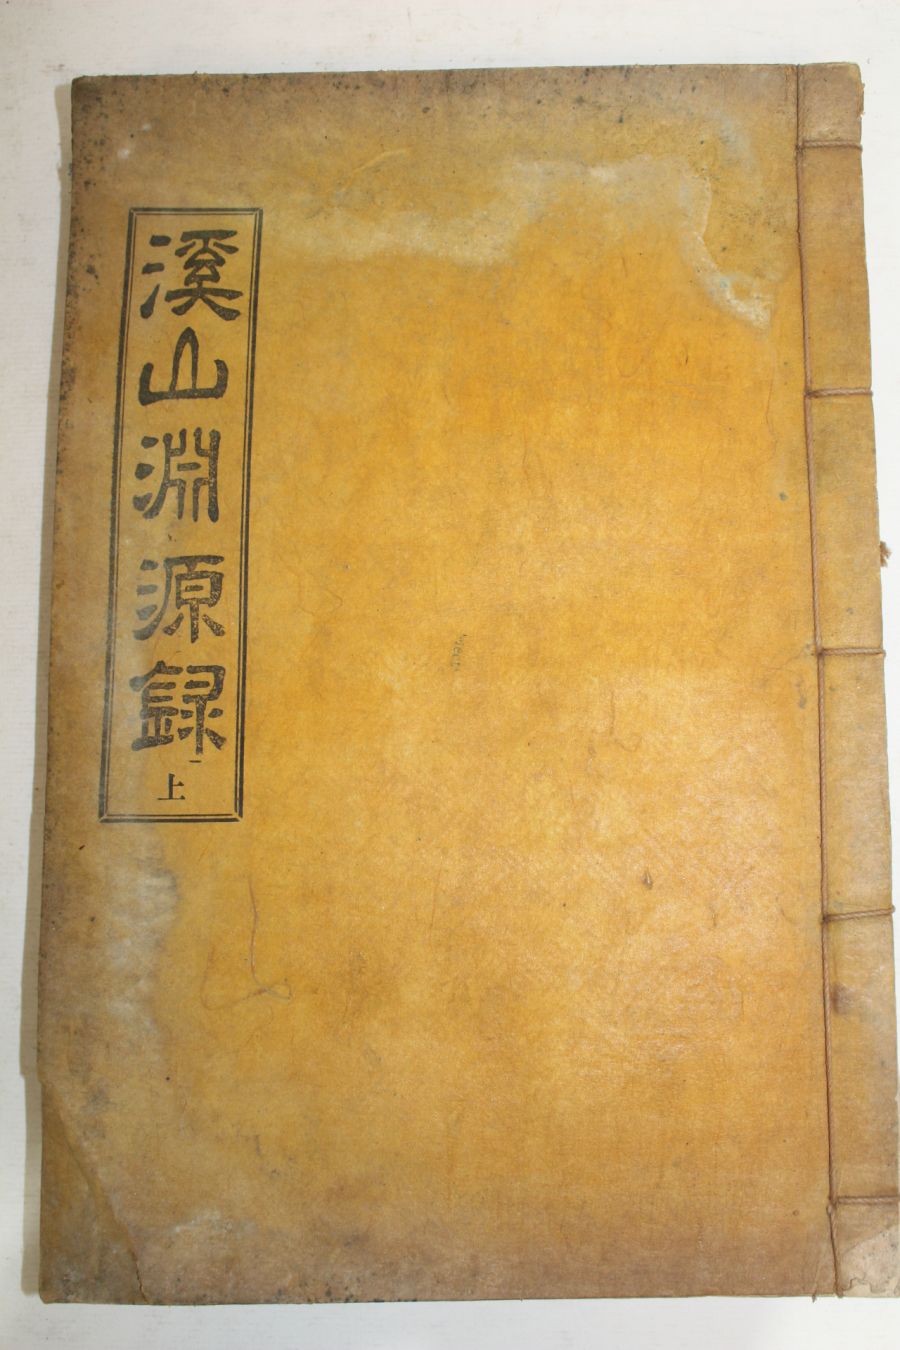 溪山淵源録
上